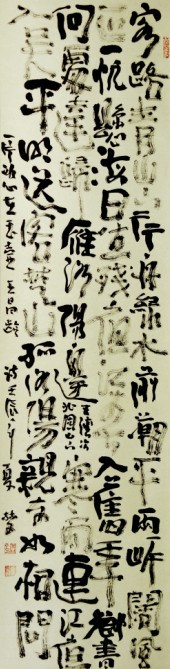 客路青山行舟綠水前潮平兩岸闊風
正一帆懸海日生殘夜江春入舊年鄉書
何處達歸雁洛陽邊王灣次北固山下寒雨連江夜
入吳平明送客楚山孤洛陽親友如相問
一片冰心在玉壺王昌齡詩壬辰年夏